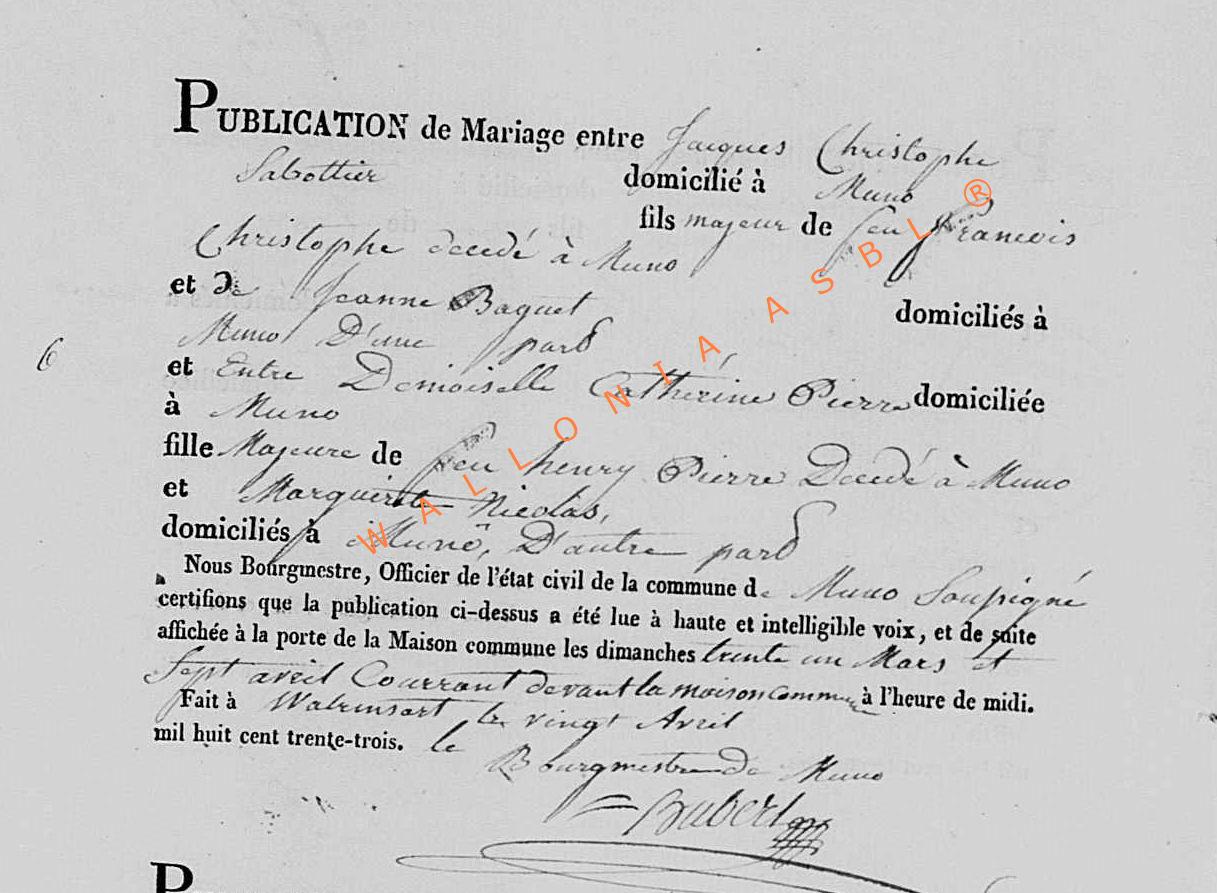 PUBLICATION de Mariage entre Jacques Christophe
Sabottier domicilié à Muno
fils majeur de feu Francois
Christophe decedé à Muno
et De Jeanne Baguet domiciliés à
Muno D'une part
6
et Entre Demoiselle Catherine Pierre domiciliée
à Muno
fille Majeure de feu henry Pierre Decedé à Muno
et Marguerite Nicolas,
domiciliés à Muno, D'autre part
Nous Bourgmestre, Officier de l'état civil de la commune de Muno Soussigné
certifions que la publication ci-dessus a été lue à haute et intelligible voix, et de suite
affichée à la porte de la Maison commune les dimanches trente un Mars et
Sept avril Courrant devant la maison commune à l'heure de midi.
Fait à Watrinsart le vingt Avril
mil huit cent trente-trois. le
Bourgmestre De Muno
Hubert
P
WALLONIA ASBL ®